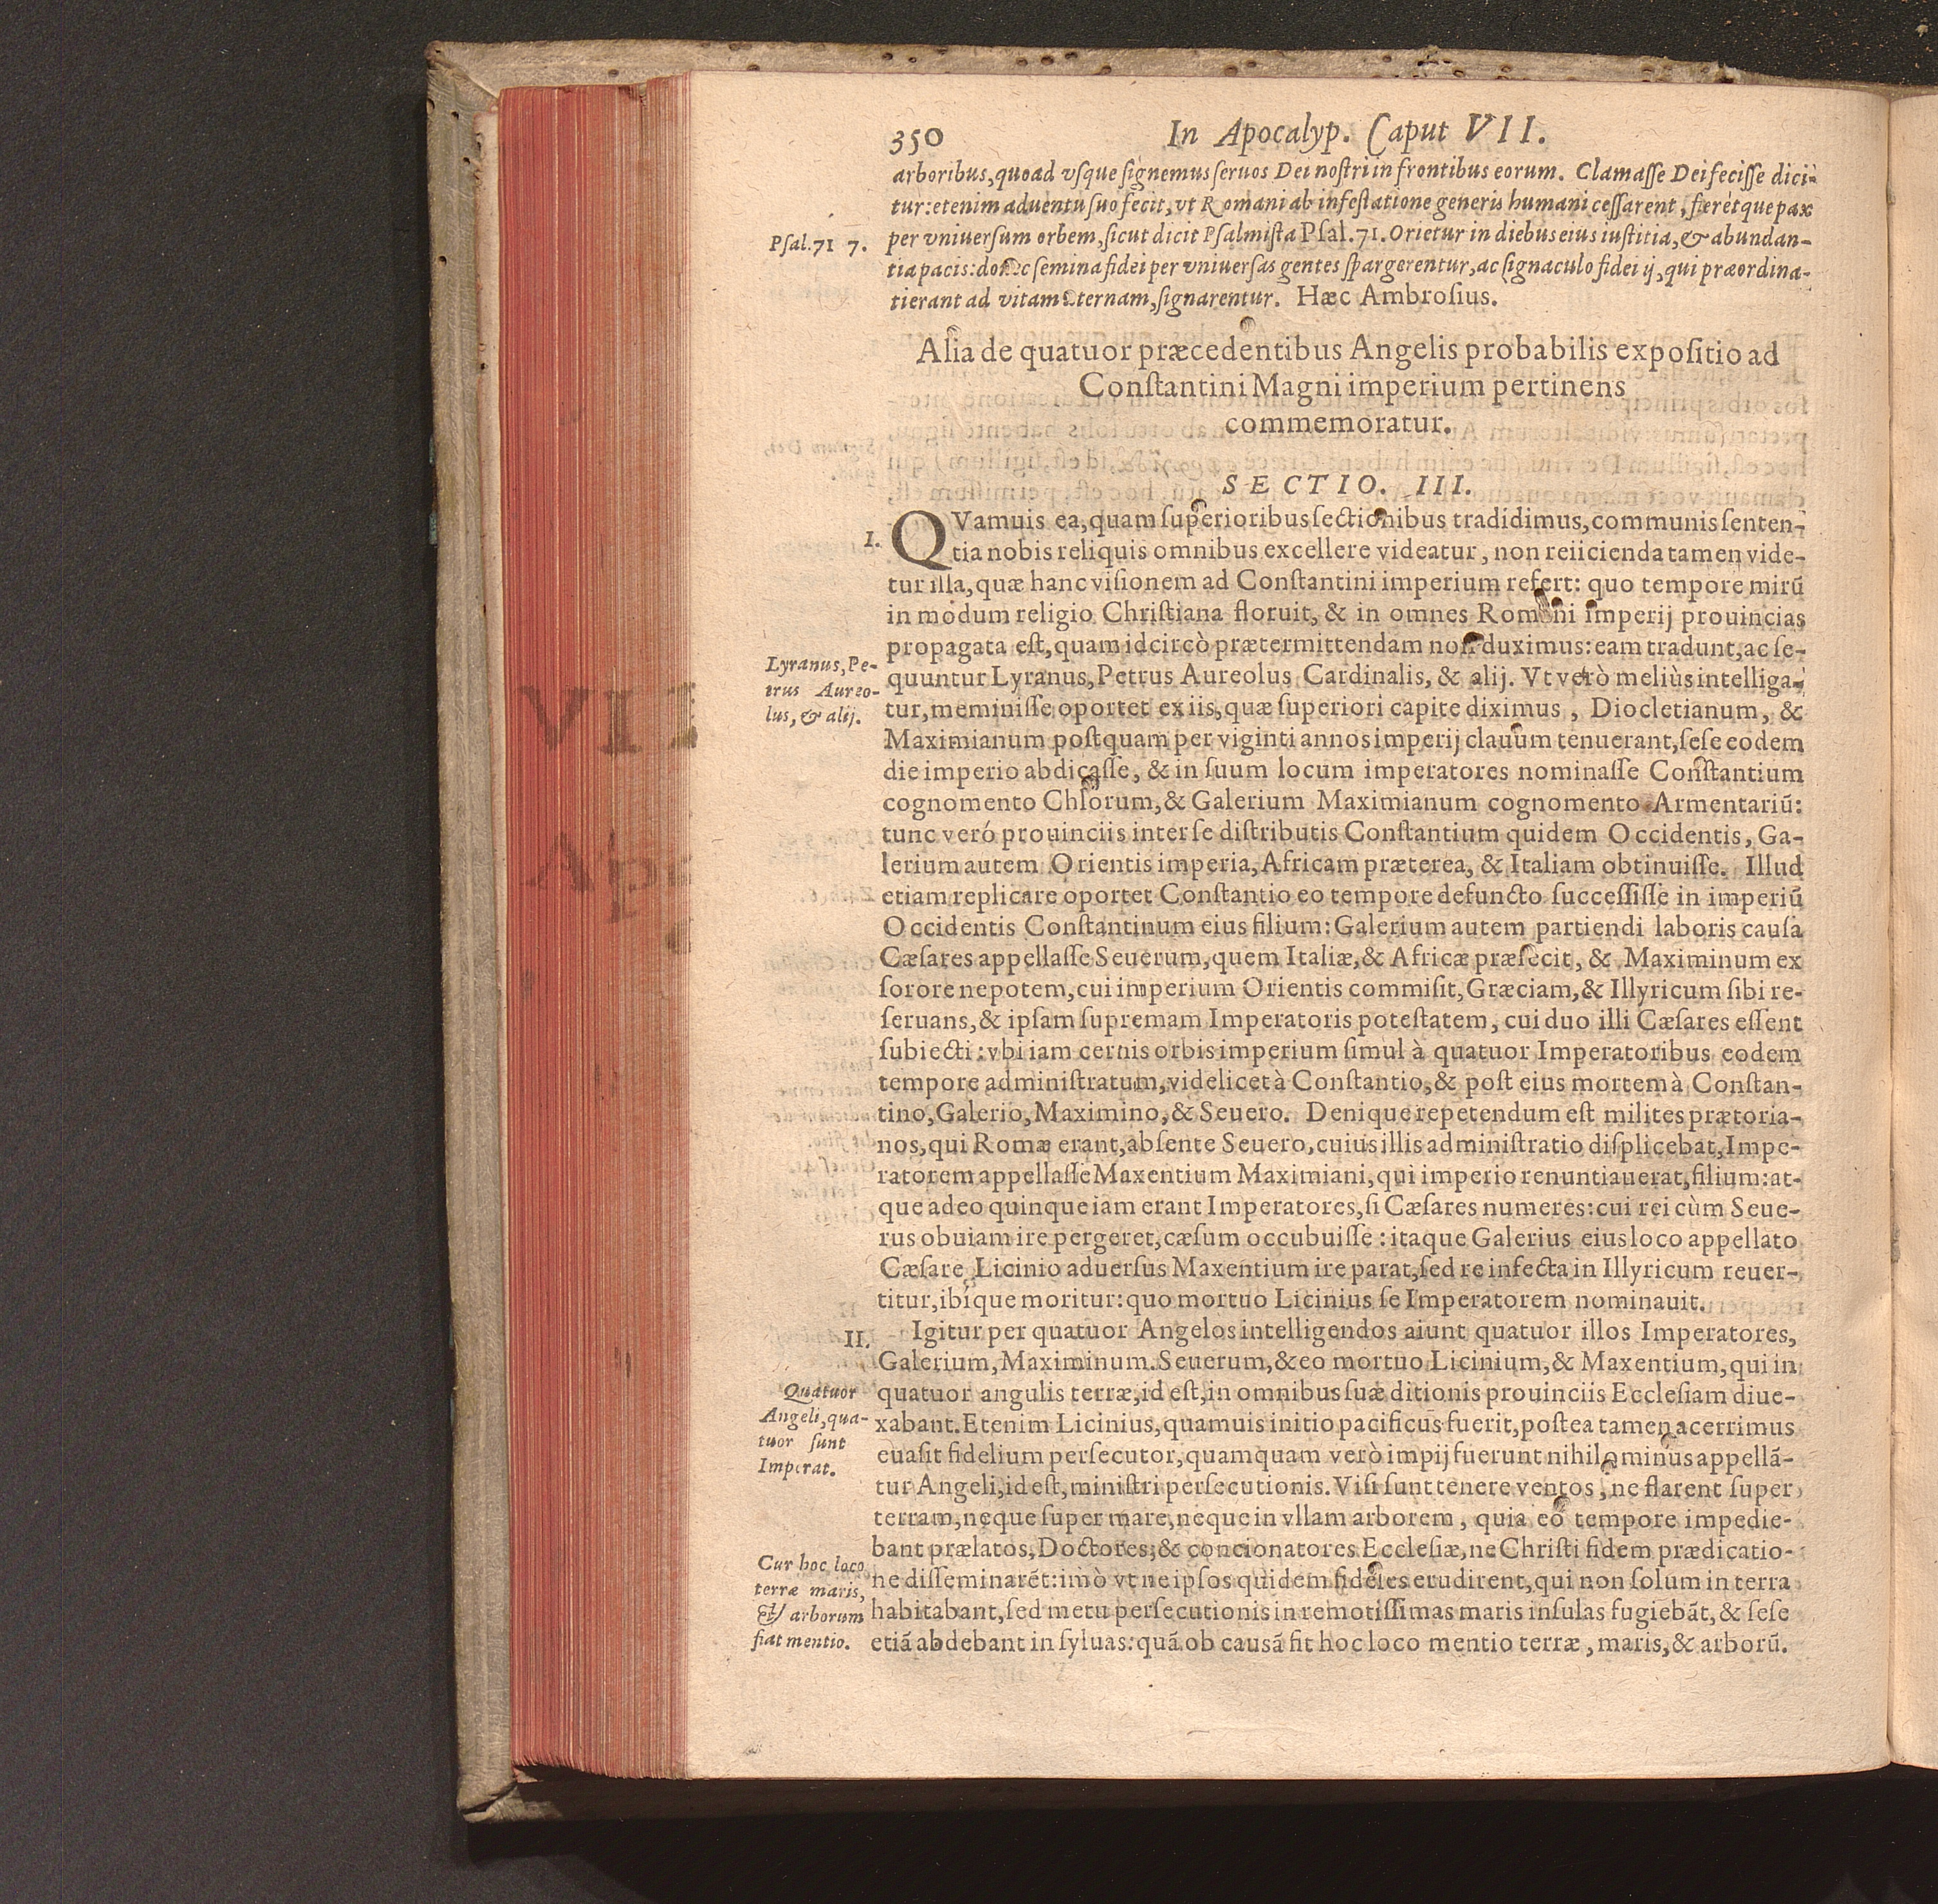 350 In Apocalyp. Caput VII.
arboribus, quoad vſque ſignemus ſeruos Dei noſtri in frontibus eorum. Clamaſſe Dei feciſſe dici-
tur: etenim aduentu ſuo fecit, vt Romani ab infeſtatione generis humani ceſſarent, fieretque pax
Pſal. 71 7.
per vniuerſum orbem, ſicut dicit Pſalmiſta Pſal. 71. Orietur in diebus eius iuſtitia, & abundan-
tia pacis: donec ſemina fidei per vniuerſas gentes ſpargerentur, ac ſignaculo fidei ij, qui præordina-
ti erant ad vitam æternam, ſignarentur. Hæc Ambroſius.
Alia de quatuor præcedentibus Angelis probabilis expoſitio ad
Conſtantini Magni imperium pertinens
commemoratur.
SECTIO. III.
I.
QVamuis ea, quam ſuperioribus ſectionibus tradidimus, communis ſenten-
tia nobis reliquis omnibus excellere videatur, non reiicienda tamen vide-
tur illa, quæ hanc viſionem ad Conſtantini imperium refert: quo tempore mirū
in modum religio Chriſtiana floruit, & in omnes Romani imperij prouincias
propagata eſt, quam idcircò prætermittendam non duximus: eam tradunt, ac ſe-
Lyranus, Pe-
trus Aureo-
lus, & alij.
quuntur Lyranus, Petrus Aureolus Cardinalis, & alij. Vt verò meliùs intelliga-
tur, meminiſſe oportet ex iis, quæ ſuperiori capite diximus, Diocletianum, &
Maximianum poſtquam per viginti annos imperij clauum tenuerant, ſeſe eodem
die imperio abdicaſſe, & in ſuum locum imperatores nominaſſe Conſtantium
cognomento Chlorum, & Galerium Maximianum cognomento Armentariū:
tunc veró prouinciis inter ſe diſtributis Conſtantium quidem Occidentis, Ga-
lerium autem Orientis imperia, Africam præterea, & Italiam obtinuiſſe. Illud
etiam replicare oportet Conſtantio eo tempore defuncto ſucceſſiſſe in imperiū
Occidentis Conſtantinum eius filium: Galerium autem partiendi laboris cauſa
Cæſares appellaſſe Seuerum, quem Italiæ, & Africæ præfecit, & Maximinum ex
ſorore nepotem, cui imperium Orientis commiſit, Græciam, & Illyricum ſibi re-
ſeruans, & ipſam ſupremam Imperatoris poteſtatem, cui duo illi Cæſares eſſent
ſubiecti: vbi iam cernis orbis imperium ſimul à quatuor Imperatoribus eodem
tempore adminiſtratum, videlicet à Conſtantio, & poſt eius mortem à Conſtan-
tino, Galerio, Maximino, & Seuero. Denique repetendum eſt milites prætoria-
nos, qui Romæ erant, abſente Seuero, cuius illis adminiſtratio diſplicebat, Impe-
ratorem appellaſſe Maxentium Maximiani, qui imperio renuntiauerat, filium: at-
que adeo quinque iam erant Imperatores, ſi Cæſares numeres: cui rei cùm Seue-
rus obuiam ire pergeret, cæſum occubuiſſe: itaque Galerius eius loco appellato
Cæſare Licinio aduerſus Maxentium ire parat, ſed re infecta in Illyricum reuer-
titur, ibique moritur: quo mortuo Licinius ſe Imperatorem nominauit.
II.
Igitur per quatuor Angelos intelligendos aiunt quatuor illos Imperatores,
Galerium, Maximinum. Seuerum, & eo mortuo Licinium, & Maxentium, qui in
Quatuor
Angeli, qua-
tuor ſunt
Imperat.
quatuor angulis terræ, id eſt, in omnibus ſuæ ditionis prouinciis Eccleſiam diue-
xabant. Etenim Licinius, quamuis initio pacificus fuerit, poſtea tamen acerrimus
euaſit fidelium perſecutor, quamquam verò impij fuerunt nihilominus appellā-
tur Angeli, id eſt, miniſtri perſecutionis. Viſi ſunt tenere ventos, ne flarent ſuper
terram, neque ſuper mare, neque in vllam arborem, quia eo tempore impedie-
bant prælatos, Doctores; & concionatores Eccleſiæ, ne Chriſti fidem prædicatio-
Cur hoc loco
terræ maris,
& arborum
fiat mentio.
ne diſſeminarēt: imò vt ne ipſos quidem fideles erudirent, qui non ſolum in terra
habitabant, ſed metu perſecutionis in remotiſſimas maris inſulas fugiebāt, & ſeſe
etiā abdebant in ſyluas: quā ob causā fit hoc loco mentio terræ, maris, & arborū.